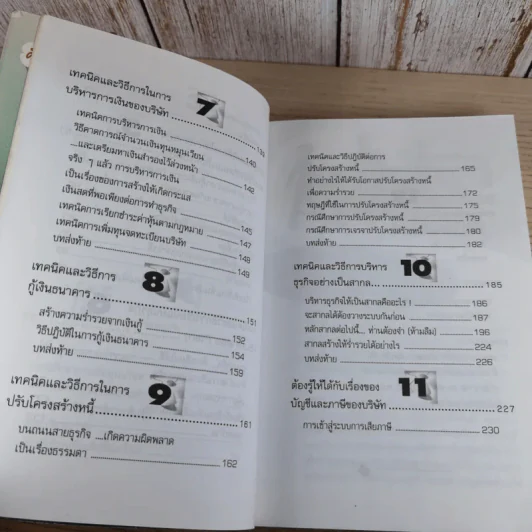 เทคนิคและวิธีการในการ
บริหารการเงินของบริษัท
7
เทคนิคการบริหารการเงิน 140
วิธีคาดการณ์จำนวนเงินทุนหมุนเวียน
...และเตรียมหาเงินสำรองไว้ล่วงหน้า 142
จริง ๆ แล้ว การบริหารการเงิน
เป็นเรื่องของการสร้างให้เกิดกระแส
เงินสดที่พอเพียงต่อการทำธุรกิจ 145
เทคนิคการเรียกชำระค่าหุ้นตามกฎหมาย 147
เทคนิคการเพิ่มทุนจดทะเบียนบริษัท 148
บทส่งท้าย 149
เทคนิคและวิธีการ
กู้เงินธนาคาร 151
8
สร้างความร่ำรวยจากเงินกู้ 152
วิธีปฏิบัติในการกู้เงินธนาคาร 154
บทส่งท้าย 159
เทคนิคและวิธีการในการ
ปรับโครงสร้างหนี้ 161
9
บนถนนสายธุรกิจ ....เกิดความผิดพลาด
เป็นเรื่องธรรมดา 162
เทคนิคและวิธีปฏิบัติต่อการ
ปรับโครงสร้างหนี้ 165
ทำอย่างไรให้ได้รับโอกาสปรับโครงสร้างหนี้
เพื่อความร่ำรวย 172
ทฤษฎีที่ใช้ในการปรับโครงสร้างหนี้ 175
กรณีศึกษาการปรับโครงสร้างหนี้ 179
กรณีศึกษาการเจรจาปรับโครงสร้างหนี้ 180
บทส่งท้าย 182
เทคนิคและวิธีการบริหาร
ธุรกิจอย่างเป็นสากล 185
10
บริหารธุรกิจให้เป็นสากลคืออะไร ! 186
จะสากลได้ต้องวางระบบกันก่อน 187
หลักสากลต่อไปนี้... ท่านต้องจำ (ห้ามลืม) 196
สากลสร้างให้ร่ำรวยได้อย่างไร 224
บทส่งท้าย 226
ต้องรู้ให้ได้กับเรื่องของ
บัญชีและภาษีของบริษัท 227
11
การเข้าสู่ระบบการเสียภาษี 230